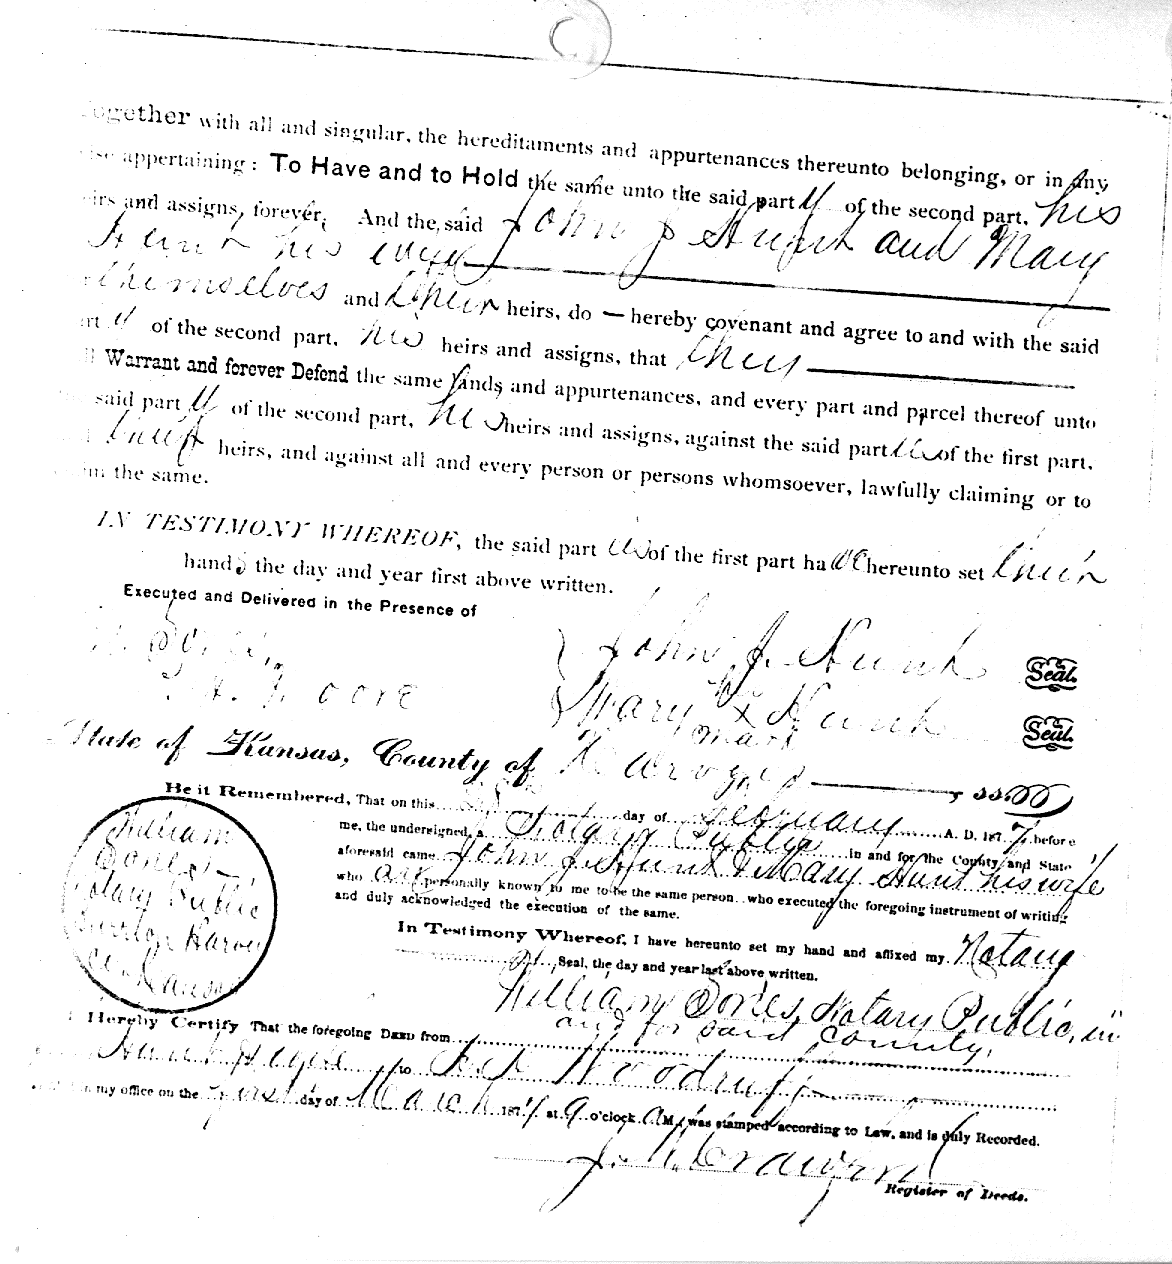 ogether with all and singular, the hereditaments and appurtenances thereunto belonging, or in any
appertaining: To Have and to Hold the same unto the said part y of the second part, his
irs and assigns, forever. And the said John J Hunt and Mary
Hunt his wife
themselves and their heirs, do — hereby covenant and agree to and with the said
rt y of the second part, his heirs and assigns, that they
Warrant and forever Defend the same lands and appurtenances, and every part and parcel thereof unto
said part y of the second part, his heirs and assigns, against the said part ies of the first part,
their heirs, and against all and every person or persons whomsoever, lawfully claiming or to
im the same.
IN TESTIMONY WHEREOF, the said part ies of the first part ha ve hereunto set their
hands the day and year first above written.
Executed and Delivered in the Presence of
John J. Hunt Seal.
Mary X Hunt Seal.
mark
State of Kansas, County of ss
Be it Remembered, That on this day of February A. D. 187 7, before
me, the undersigned, a Notary Public in and for the County and State
aforesaid came John J Hunt & Mary Hunt his wife
who are personally known to me to be the same person who executed the foregoing instrument of writing
and duly acknowledged the execution of the same.
In Testimony Whereof, I have hereunto set my hand and affixed my Notary
Seal, the day and year last above written.
William Notary Public, in
and for said County.
William
Notary Public
Kansas
Hereby Certify That the foregoing DEED from
Hunt to Woodruff
my office on the first day of March 187 at 9 o'clock A M., was stamped according to Law, and is duly Recorded.
Register of Deeds.